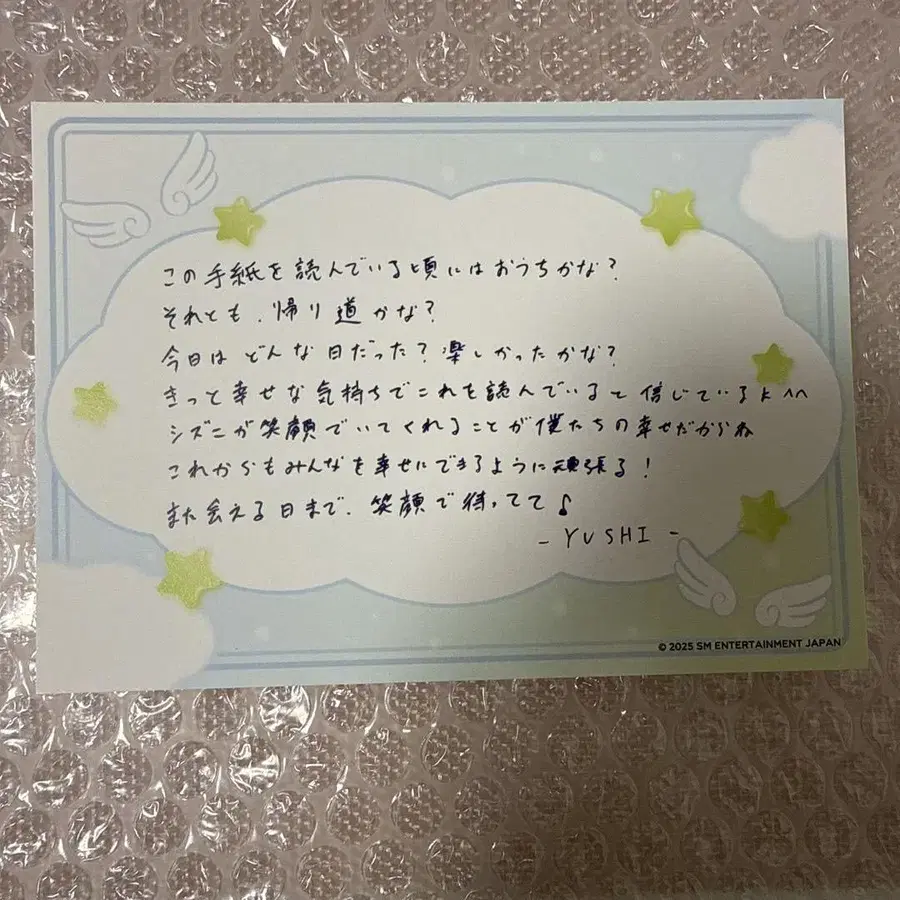 この手紙を読んでいる頃にはおうちかな?
それとも、帰り道かな?
今日はどんな日だった?楽しかったかな?
きっと幸せな気持ちでこれを読んでいると信じているよ^^
シズニが笑顔でいてくれることが僕たちの幸せだからね
これからもみんなを幸せにできるように頑張る!
また会える日まで、笑顔で待ってて♪
- YUSHI -
© 2025 SM ENTERTAINMENT JAPAN